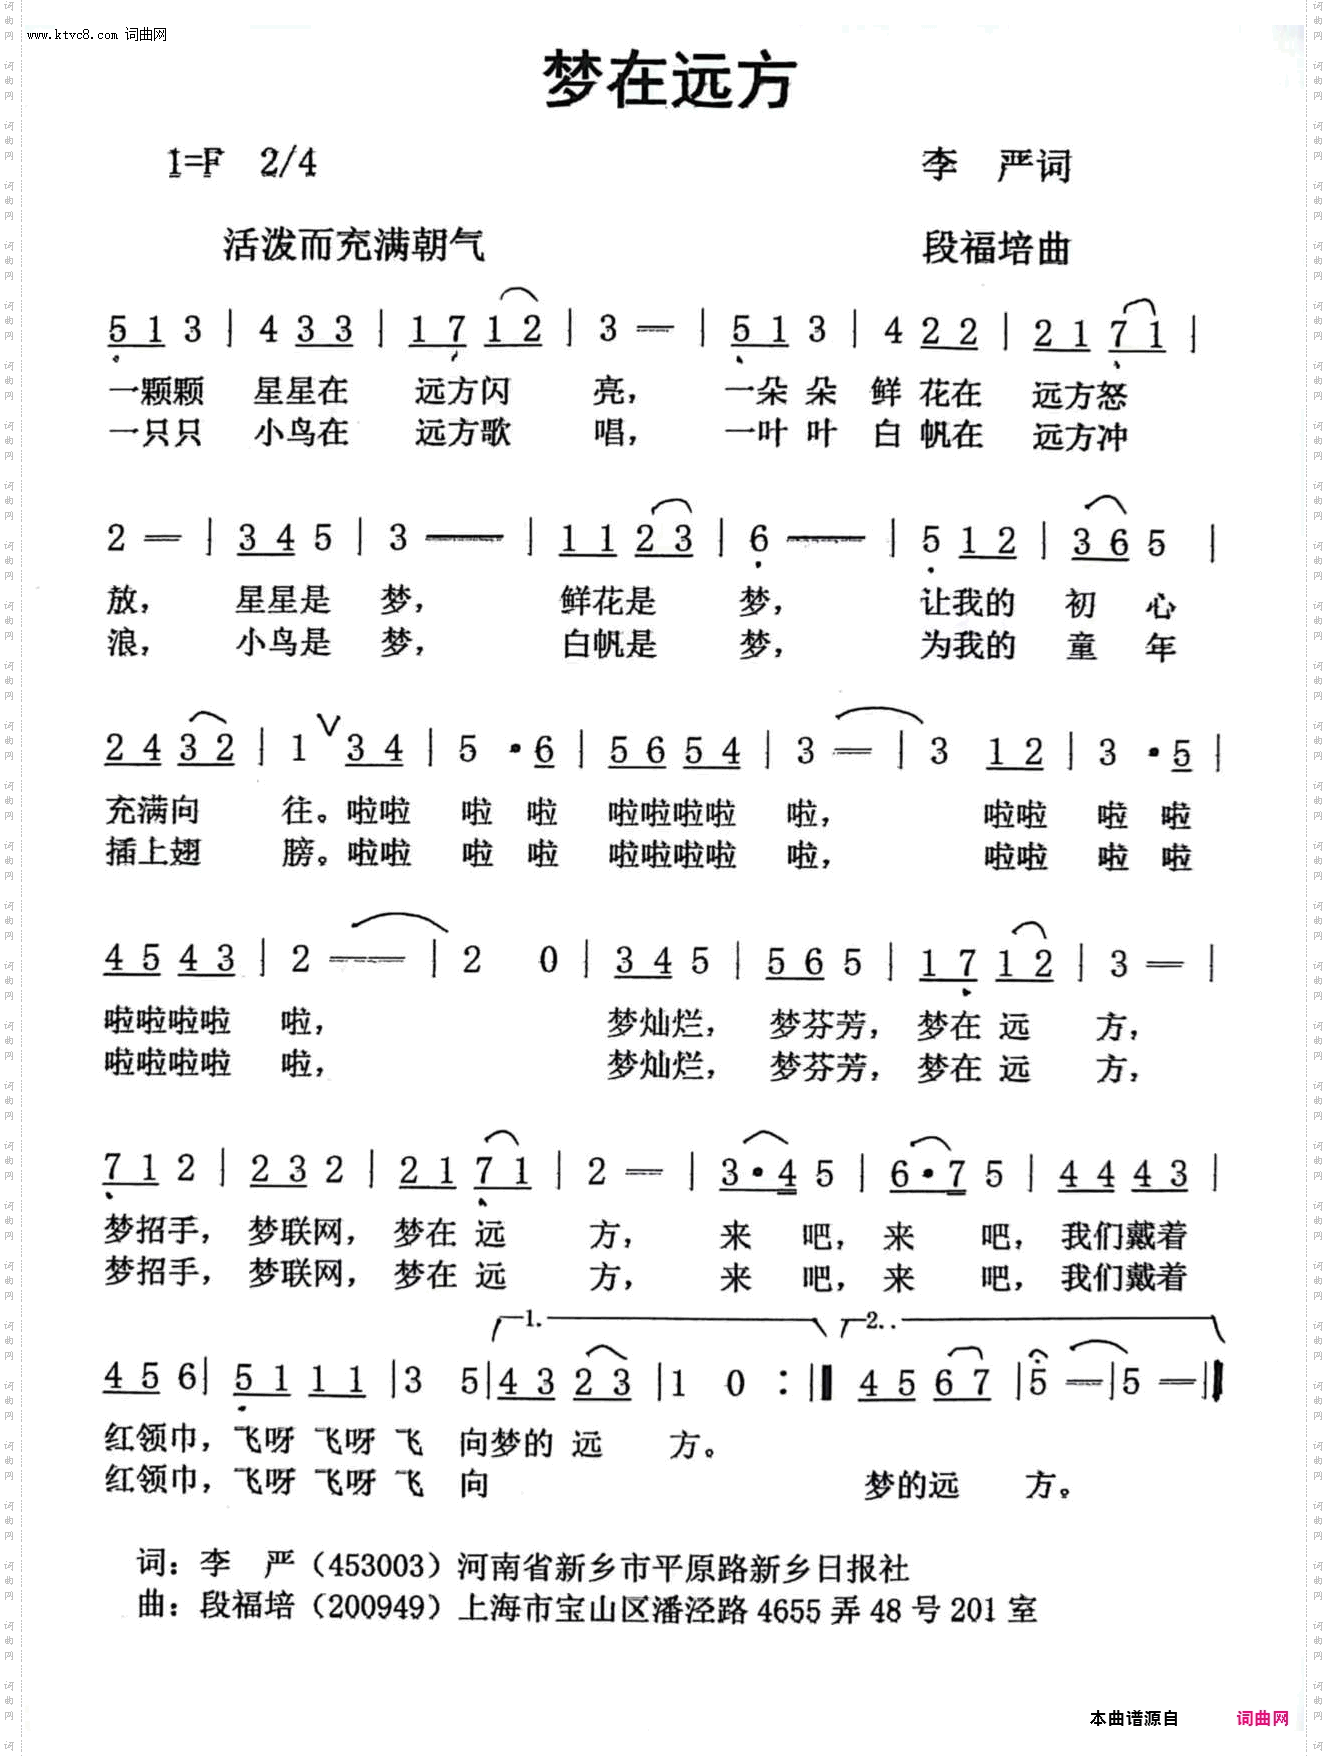 www.ktvc8.com 词曲网
梦在远方
1=F 2/4 李 严词
活泼而充满朝气 段福培曲
5 1 3 | 4 3 3 | 1 7 1 2 | 3 — | 5 1 3 | 4 2 2 | 2 1 7 1 |
一颗颗 星星在 远方闪 亮， 一朵 朵 鲜 花在 远方怒
一只只 小鸟在 远方歌 唱， 一叶 叶 白 帆在 远方冲
2 — | 3 4 5 | 3 — | 1 1 2 3 | 6 — | 5 1 2 | 3 6 5 |
放， 星星是 梦， 鲜花是 梦， 让我的 初 心
浪， 小鸟是 梦， 白帆是 梦， 为我的 童 年
2 4 3 2 | 1 V 3 4 | 5 · 6 | 5 6 5 4 | 3 — | 3 1 2 | 3 · 5 |
充满向 往。啦啦 啦 啦 啦啦啦啦 啦， 啦啦 啦 啦
插上翅 膀。啦啦 啦 啦 啦啦啦啦 啦， 啦啦 啦 啦
4 5 4 3 | 2 — | 2 0 | 3 4 5 | 5 6 5 | 1 7 1 2 | 3 — |
啦啦啦啦 啦， 梦灿烂， 梦芬芳， 梦在 远 方，
啦啦啦啦 啦， 梦灿烂， 梦芬芳， 梦在 远 方，
7 1 2 | 2 3 2 | 2 1 7 1 | 2 — | 3 · 4 5 | 6 · 7 5 | 4 4 4 3 |
梦招手， 梦联网， 梦在 远 方， 来 吧， 来 吧， 我们戴着
梦招手， 梦联网， 梦在 远 方， 来 吧， 来 吧， 我们戴着
1. 2..
4 5 6 | 5 1 1 1 | 3 5 | 4 3 2 3 | 1 0 :‖ 4 5 6 7 | 5 — | 5 — ‖
红领巾， 飞呀 飞呀 飞 向梦的 远 方。
红领巾， 飞呀 飞呀 飞 向 梦的远 方。
词：李 严（453003）河南省新乡市平原路新乡日报社
曲：段福培（200949）上海市宝山区潘泾路 4655 弄 48 号 201 室
本曲谱源自 词曲网